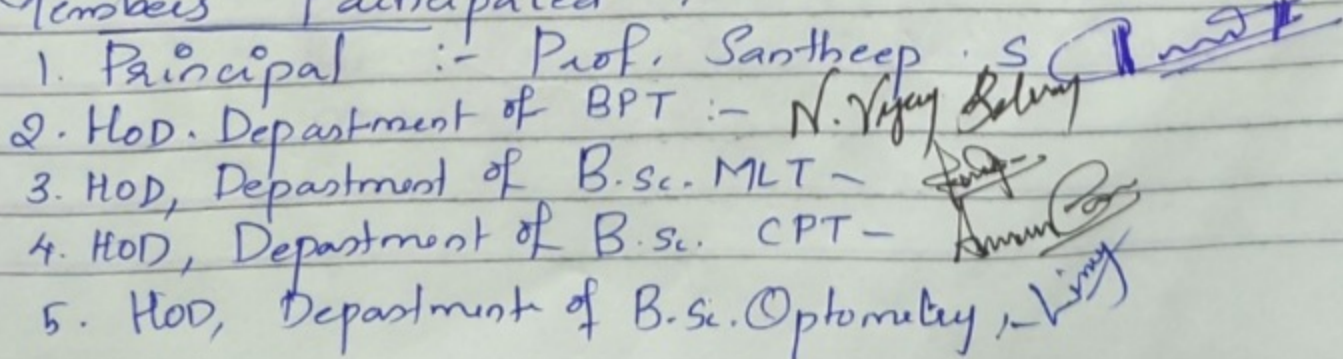 Members Participated
1. Principal :- Prof. Santheep . S
2. HoD. Department of BPT :- N. Vijay
3. HOD, Department of B.Sc. MLT -
4. HOD, Department of B.Sc. CPT - Arun
5. HOD, Department of B.Sc. Optometry, - Limy